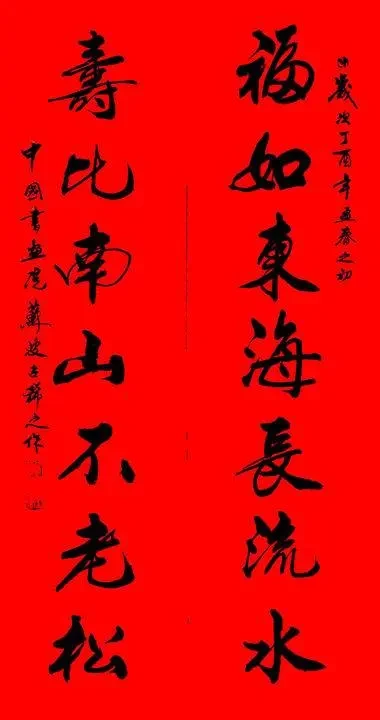 歲次丁酉年孟春之初
福如東海長流水
壽比南山不老松
中國書畫院蘇波古稀之作